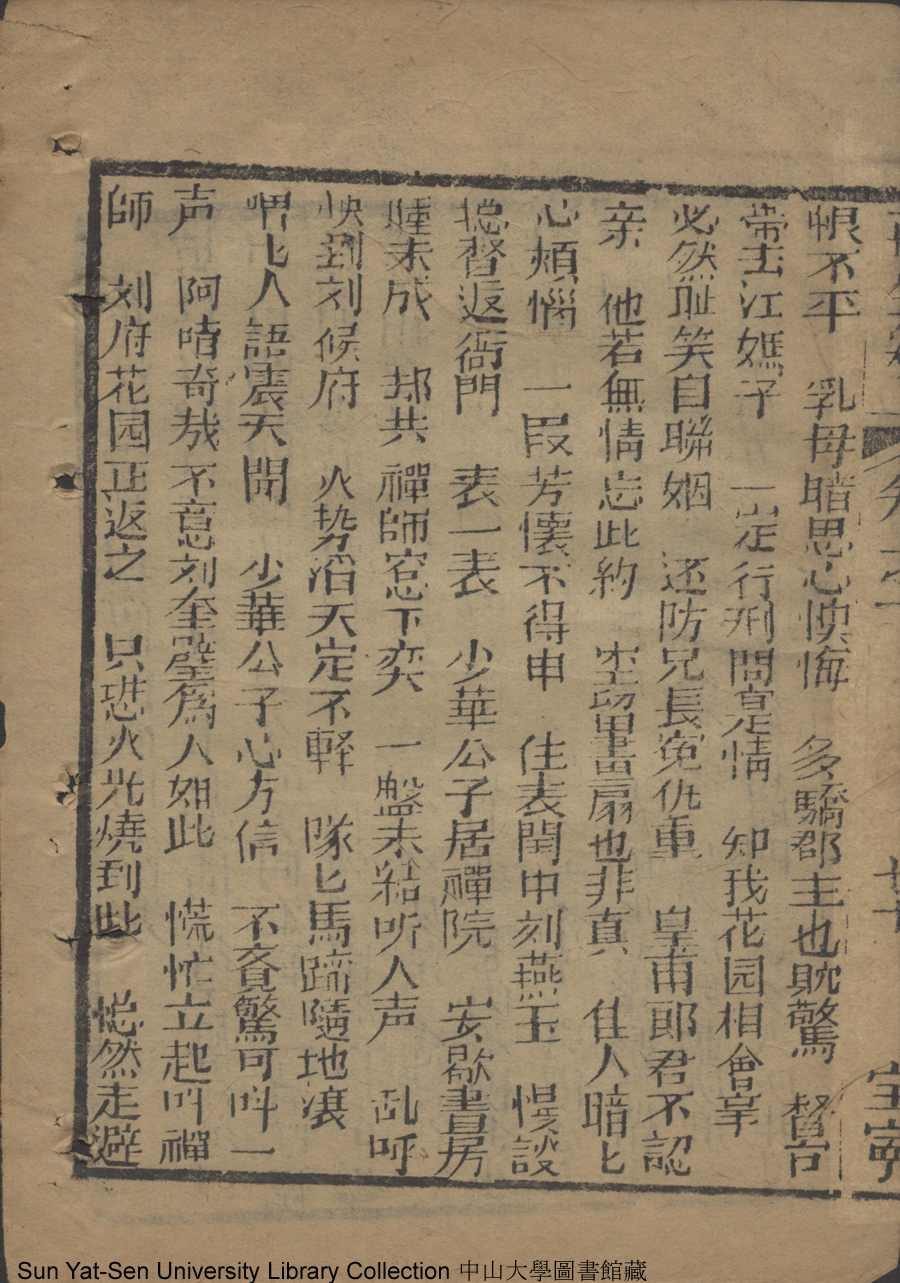 恨不平 乳母暗思心懊悔 多驕郡主也躭驚 督台
帶去江媽子 一定行刑問寔情 知我花园相會事
必然耻笑自聯姻 还防兄長冤仇重 皇甫郎君不認
亲 他若無情忘此約 空留畫扇也非真 佳人暗匕
心煩惱 一段芳懷不得申 住表閨中刘燕玉 慢談
搃督返衙門 表一表 少華公子居禪院 安歇書房
睡未成 却共禪師窓下奕 一盤未結听人声 乱呼
快到刘候府 火势滔天定不輕 隊匕馬蹄隨地滾
喟匕人語震天聞 少華公子心方信 不覚驚可叫一
声 阿唷奇哉不意刘奎璧爲人如此 慌忙立起叫禪
師 刘府花园正返之 只恐火光燒到此 搃然走避
Sun Yat-Sen University Library Collection 中山大學圖書館藏